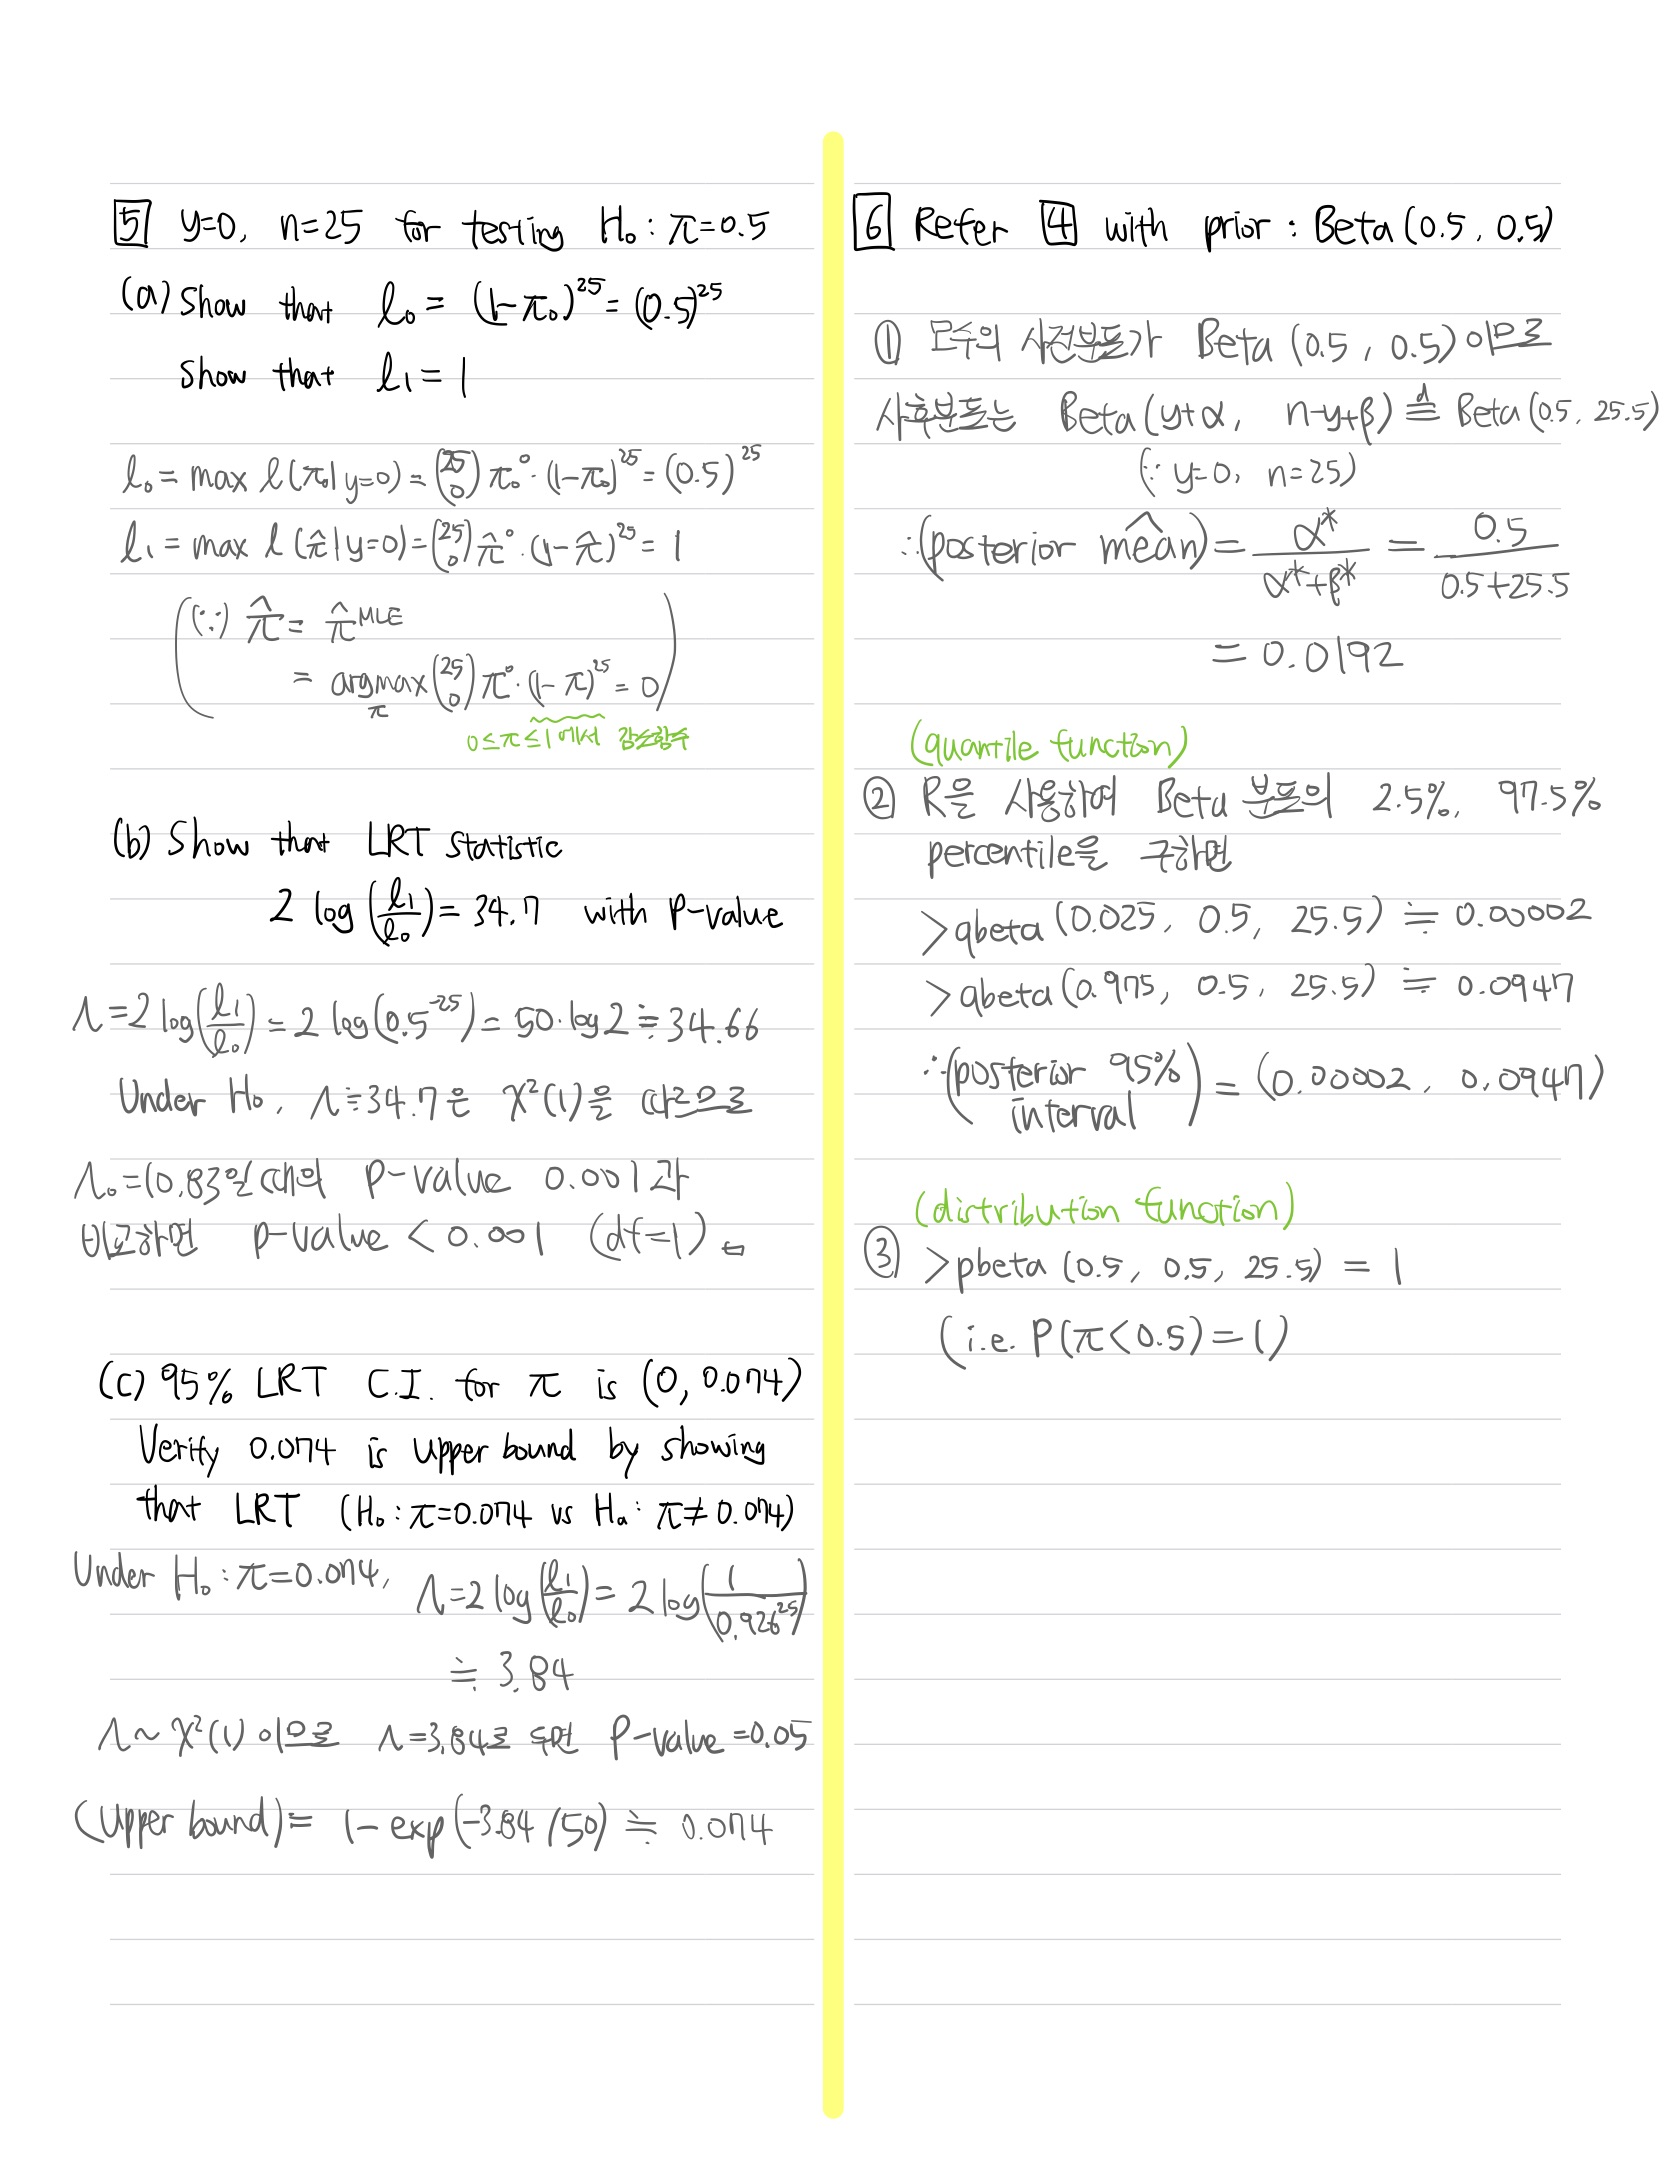 5 y=0, n=25 for testing H₀ : π=0.5
(a) Show that ℓ₀ = (1-π₀)²⁵ = (0.5)²⁵
Show that ℓ₁ = 1
ℓ₀ = max ℓ(π₀|y=0) = (25 0) π₀⁰·(1-π₀)²⁵ = (0.5)²⁵
ℓ₁ = max ℓ(π̂|y=0) = (25 0) π̂⁰·(1-π̂)²⁵ = 1
(∵) π̂ = π̂ᴹᴸᴱ
= argmax (25 0) π⁰·(1-π)²⁵ = 0
π
0≤π≤1에서 감소함수
(b) Show that LRT statistic
2 log(ℓ₁/ℓ₀) = 34.7 with P-value
Λ = 2 log(ℓ₁/ℓ₀) = 2 log(0.5⁻²⁵) = 50·log2 ≒ 34.66
Under H₀, Λ≒34.7은 χ²(1)을 따르므로
Λ₀=10.83일 때의 P-value 0.001과
비교하면 p-value < 0.001 (df=1)
(c) 95% LRT C.I. for π is (0, 0.074)
Verify 0.074 is upper bound by showing
that LRT (H₀ : π=0.074 vs Hₐ : π≠0.074)
Under H₀ : π=0.074, Λ=2 log(ℓ₁/ℓ₀) = 2 log(1/0.926²⁵)
≒ 3.84
Λ ~ χ²(1) 이므로 Λ=3.84로 두면 P-value=0.05
(Upper bound) = 1 - exp(-3.84/50) ≒ 0.074
6 Refer 4 with prior : Beta(0.5, 0.5)
① 모수의 사전분포가 Beta(0.5, 0.5)이므로
사후분포는 Beta(y+α, n-y+β) ≜ Beta(0.5, 25.5)
(∵ y=0, n=25)
∴ (posterior mean)^ = α*/(α*+β*) = 0.5/(0.5+25.5)
= 0.0192
(quantile function)
② R을 사용하여 Beta 분포의 2.5%, 97.5%
percentile을 구하면
>qbeta(0.025, 0.5, 25.5) ≒ 0.00002
>qbeta(0.975, 0.5, 25.5) ≒ 0.0947
∴ (posterior 95% interval) = (0.00002, 0.0947)
(distribution function)
③ >pbeta(0.5, 0.5, 25.5) = 1
(i.e. P(π<0.5)=1)